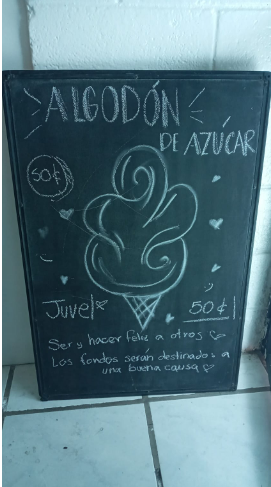 ALGODÓN
DE AZÚCAR
50¢
Juvel
50¢
Ser y hacer feliz a otros
Los fondos serán destinados a
una buena causa